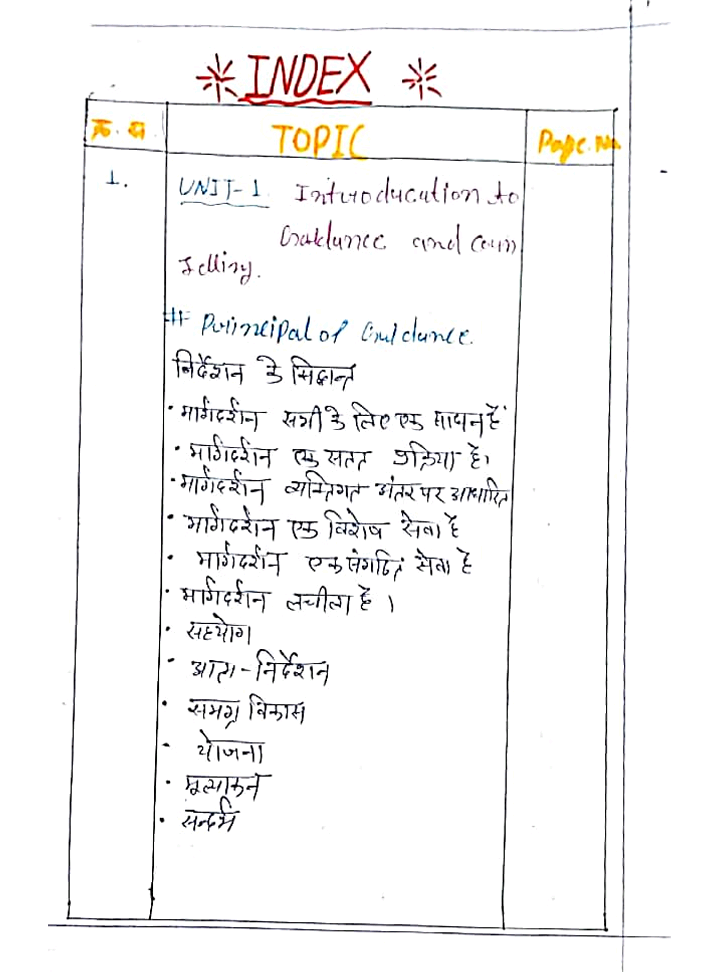 INDEX
क्र. स. TOPIC Page. No.
1. UNIT-1 Introducation to
Guidance and coun
selling.
# Principal of Guidance.
निर्देशन के सिद्धान्त
· मार्गदर्शन सभी के लिए एक साधन हैं
· मार्गदर्शन एक सतत प्रक्रिया है।
· मार्गदर्शन व्यक्तिगत अंतर पर आधारित
· मार्गदर्शन एक विशेष सेवा है
· मार्गदर्शन एक संगठित सेवा है
· मार्गदर्शन लचीला है।
· सहयोग
· आत्म-निर्देशन
· समग्र विकास
· योजना
· मूल्याकन
· सन्दर्भ